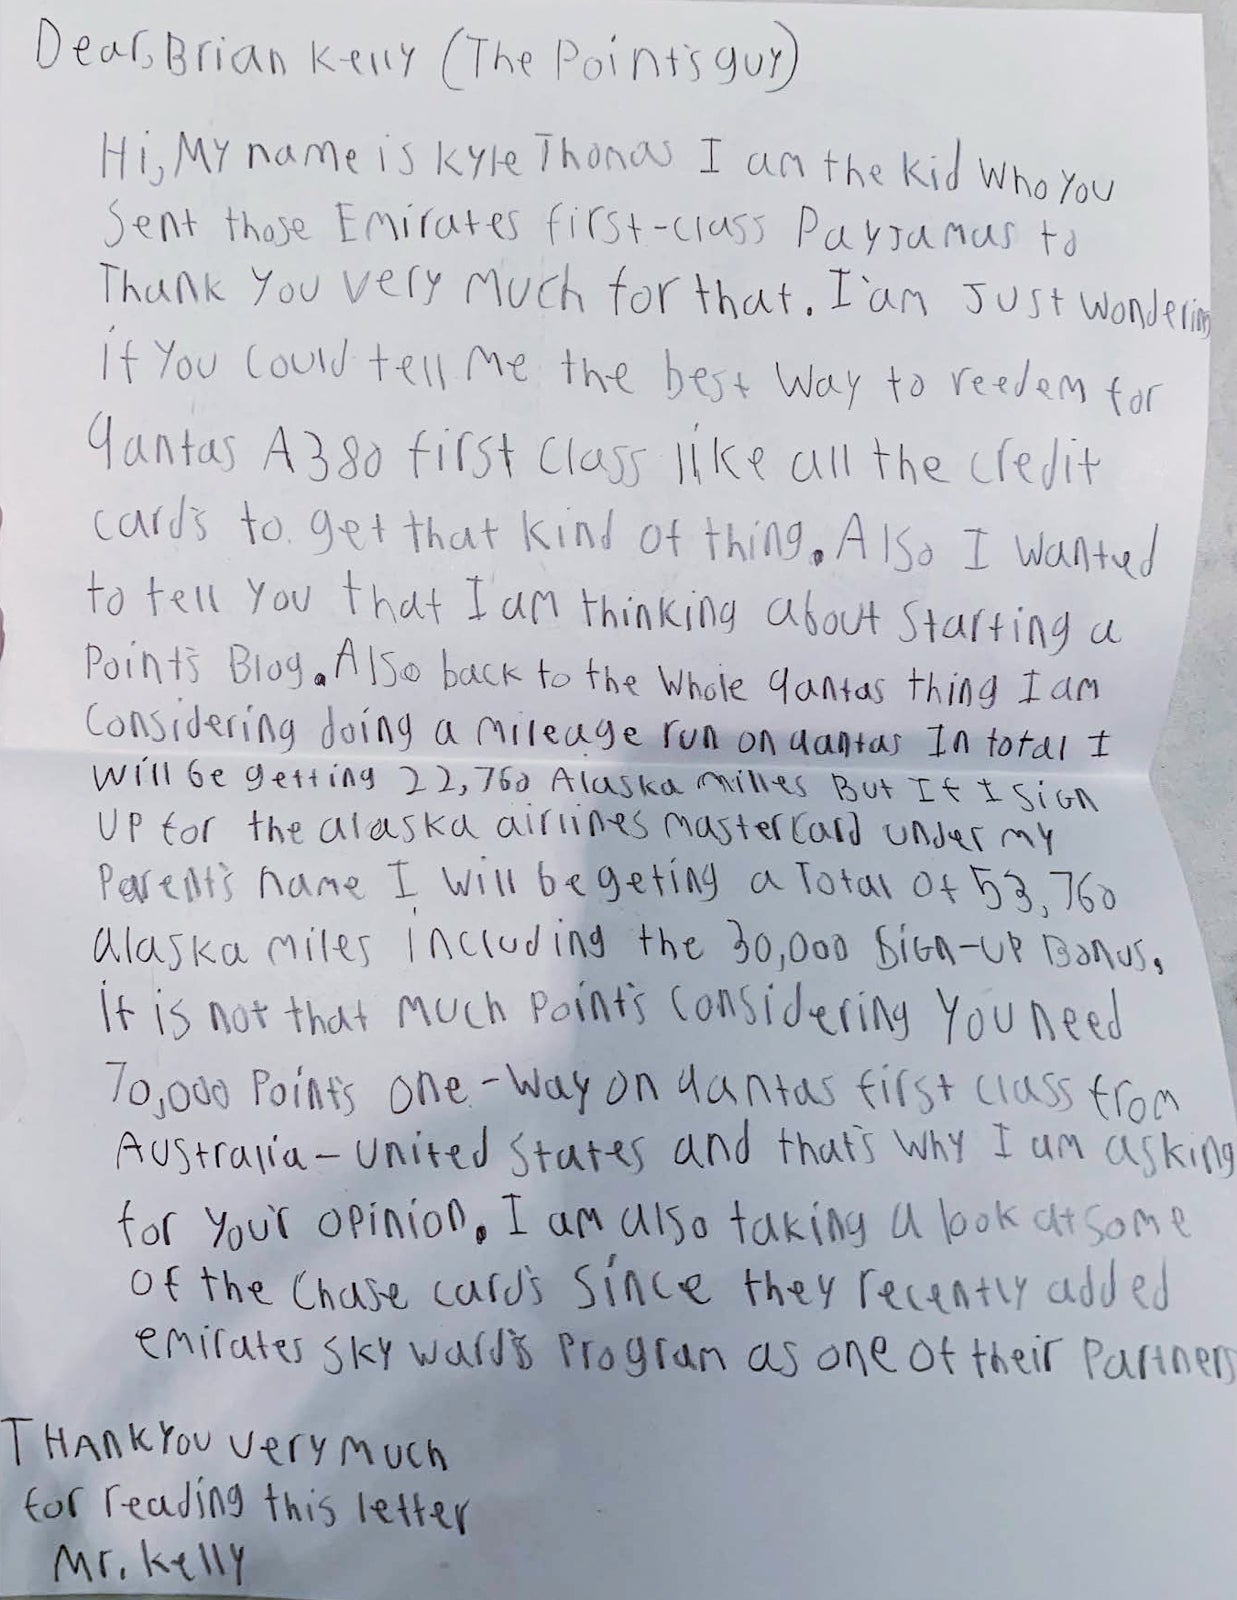 Dear, Brian Kelly (The Point's guy)
Hi, My name is Kyle Thomas I am the kid who you
sent those Emirates first-class Payjamas to
Thank you very much for that. I'am Just wondering
if you could tell me the best way to reedem for
qantas A380 first class like all the credit
card's to get that kind of thing. Also I wanted
to tell you that I am thinking about starting a
Point's Blog. Also back to the whole qantas thing I am
considering doing a mileage run on qantas In total I
will be getting 22,760 Alaska milles But If I sign
up for the alaska airlines mastercard under my
Parent's name I will be geting a Total of 53,760
alaska miles including the 30,000 Sign-up Bonus.
it is not that much point's considering you need
70,000 Point's one-way on qantas first class from
Australia-United States and that's why I am asking
for your opinion. I am also taking a look at some
of the Chase card's since they recently added
emirates sky ward's program as one of their Partners
THANK YOU very much
for reading this letter
Mr. Kelly